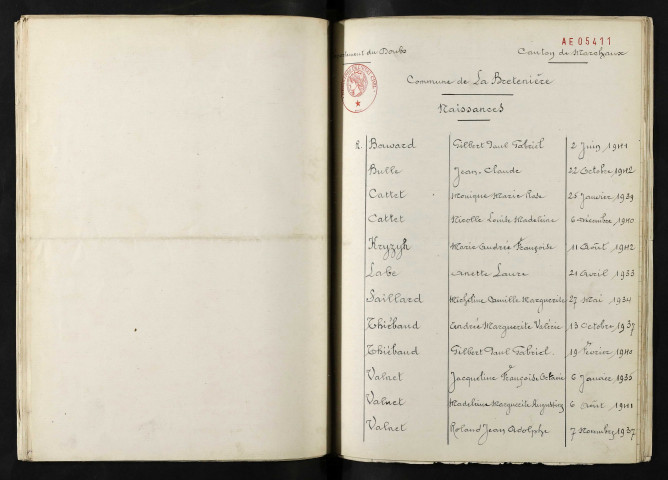 AE05411
du Doubs Canton de Marchaux
Commune de La Bretenière
Naissances
Bouvard Gilbert Paul Gabriel 2 Juin 1941
Bulle Jean-Claude 22 Octobre 1942
Cattet Monique Marie Rose 25 Janvier 1939
Cattet Nicolle Louise Madeleine 6 décembre 1940
Kryzyk Marie Andrée Françoise 11 Août 1942
Labe Anette Laure 21 Avril 1933
Saillard Micheline Camille Marguerite 27 Mai 1934
Thiébaud Andrée Marguerite Valérie 13 Octobre 1937
Thiébaud Gilbert Paul Gabriel 19 Février 1940
Valnet Jacqueline Françoise Octavie 6 Janvier 1935
Valnet Madeleine Marguerite 6 Août 1941
Valnet Roland Jean Adolphe 7 Novembre 1937